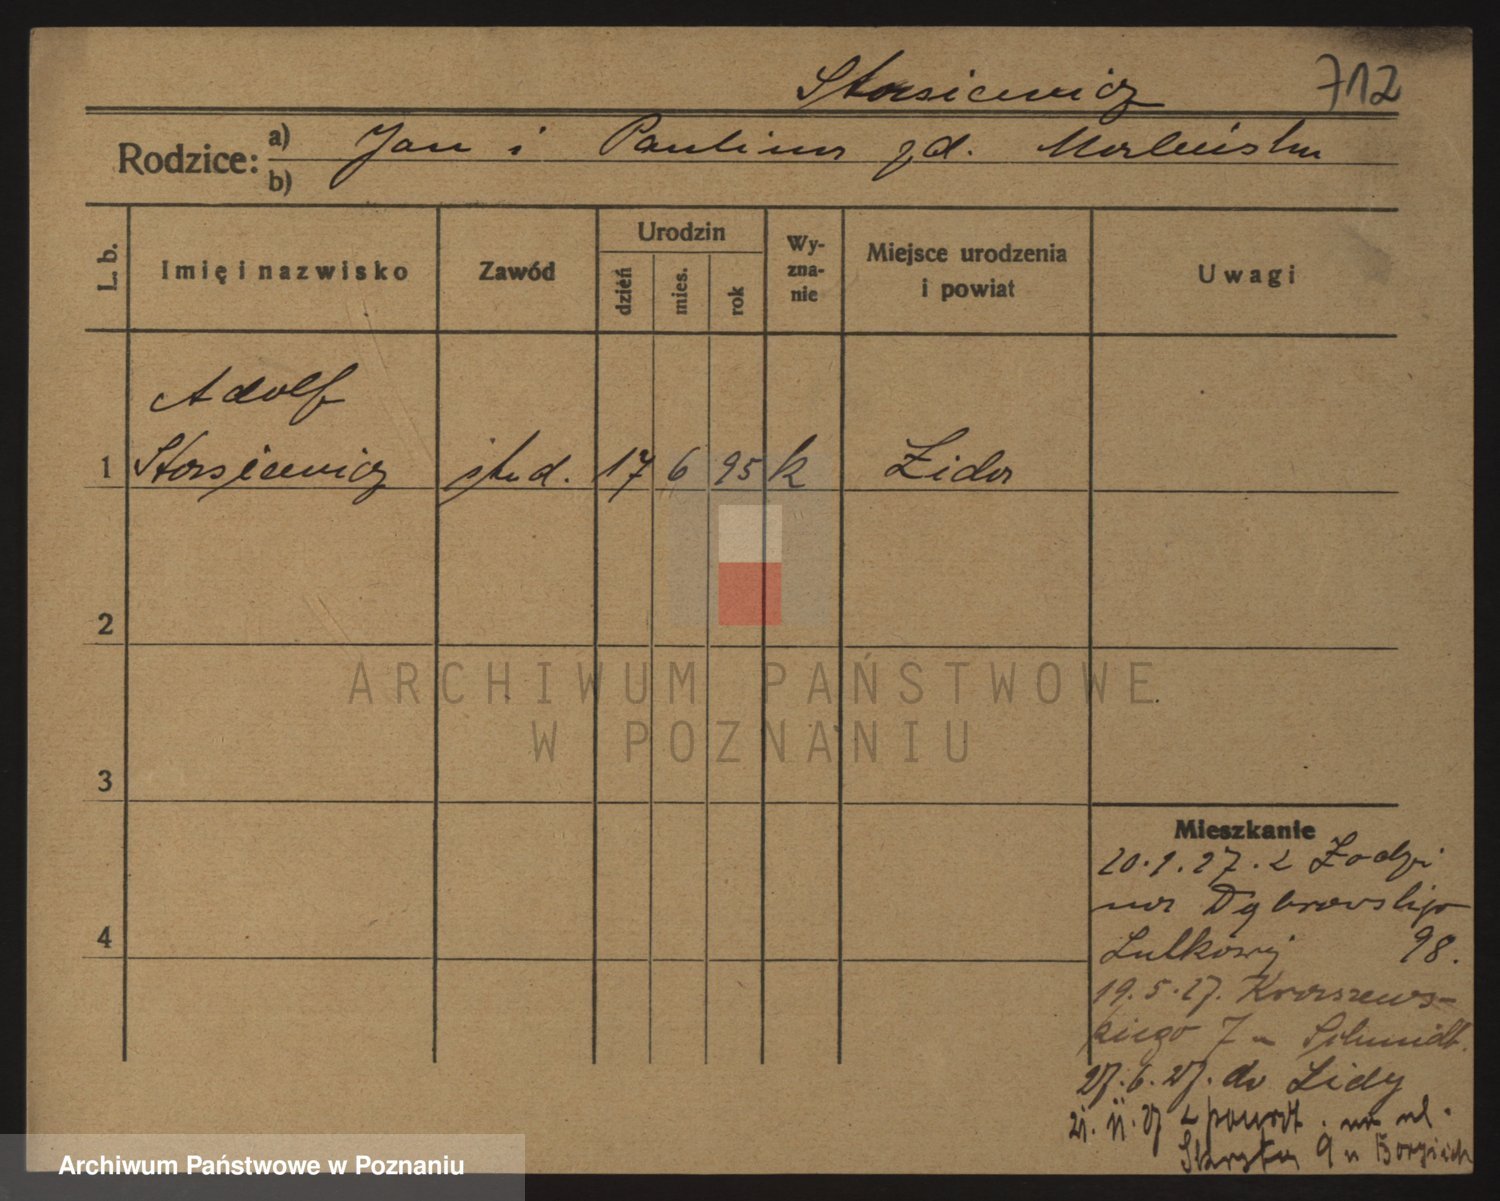 Stasiewicz 712
Rodzice: a) b) Jan i Paulina zd.
L. b.
Imię i nazwisko
Zawód
Urodzin
dzień mies. rok
Wy-
zna-
nie
Miejsce urodzenia
i powiat
Uwagi
Adolf
1 Stasiewicz stud. 17 6 95 k Lida
2
ARCHIWUM PAŃSTWOWE
W POZNANIU
3
Mieszkanie
20.1.27. z Łodzi
na Dąbrowskiego
4
98.
19.5.27. Kraszews-
kiego 7 u Schmidt.
27.6.27. do Lidy
21. 11. 27 z powrot. na ul.
9 u
Archiwum Państwowe w Poznaniu